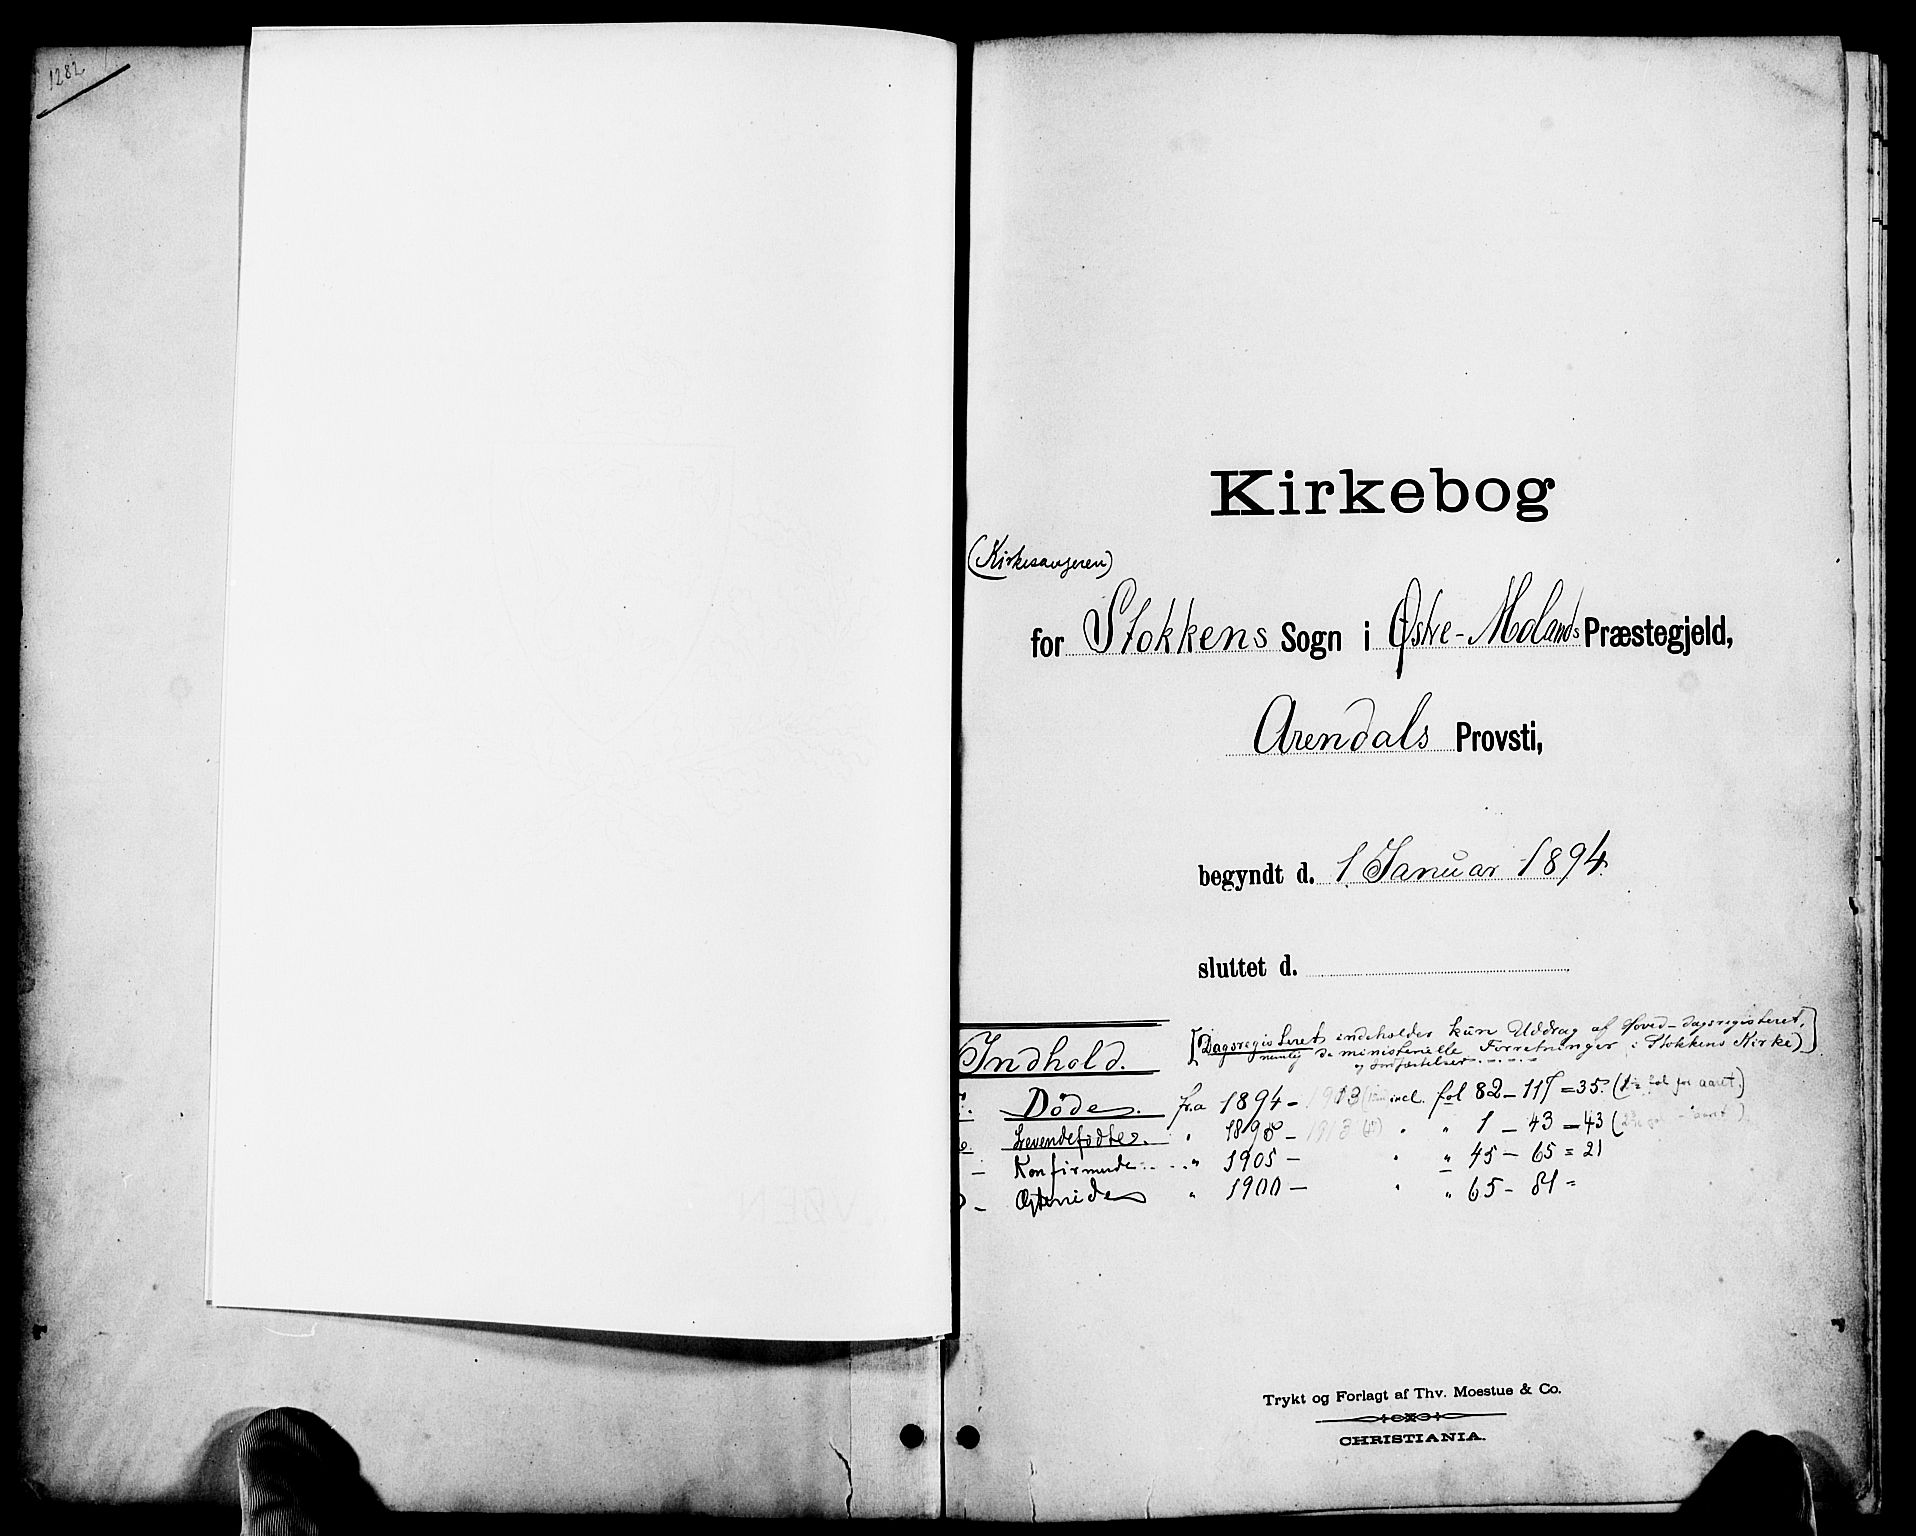 1282
Kirkebog
(Kirkesangeren)
for Stokkens Sogn i Østre-Molands Præstegjeld,
Arendals Provsti,
begyndt d. 1 Januar 1894.
sluttet d.
Indhold.
[Dagsregisteret indeholder kun Uddrag af Hoved-dagsregisteret,
nemlig de ministerielle Forretninger i Stokkens Kirke)]
Døde. fra 1894 - 1913 incl. fol 82 - 117 = 35. ( fol for aaret.)
Levendefødte. " 1898 - 1913 " " 1 - 43 = 43
Konfirmerede " 1905 - " " 45 - 65 = 21
Ægteviede " 1900 - " " 65 - 81 =
Trykt og Forlagt af Thv. Moestue & Co.
CHRISTIANIA.